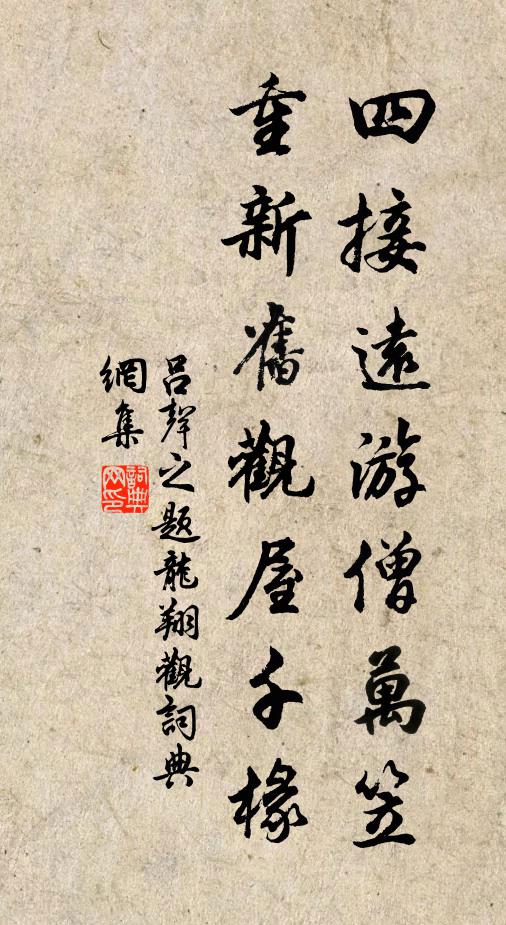 四接遠游僧萬笠
重新舊觀屋千椽
呂聲之題龍翔觀詞典
網集
詞典網印